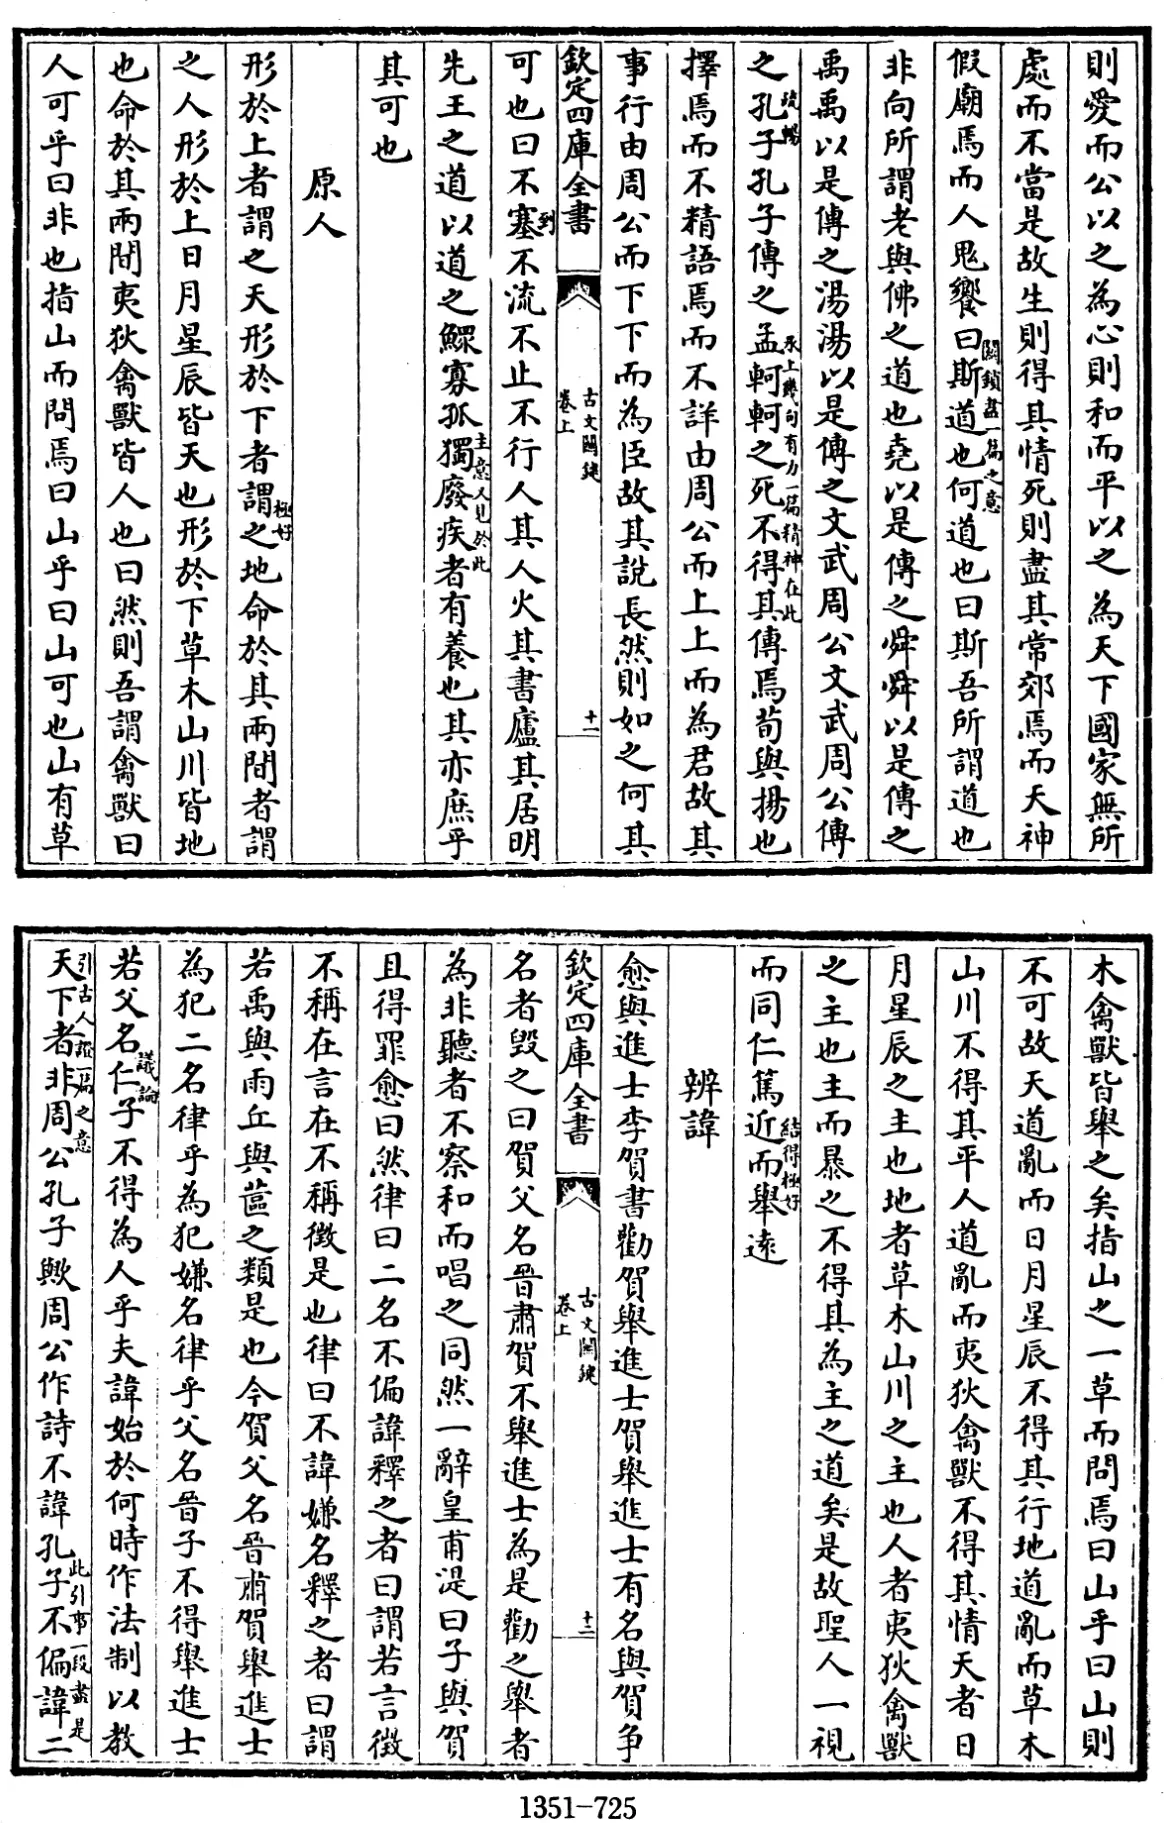 則愛而公以之為心則和而平以之為天下國家無所
處而不當是故生則得其情死則盡其常郊焉而天神
假廟焉而人鬼饗曰斯道也何道也曰斯吾所謂道也
關鎖盡一篇之意
非向所謂老與佛之道也堯以是傳之舜舜以是傳之
禹禹以是傳之湯湯以是傳之文武周公文武周公傳
之孔子孔子傳之孟軻軻之死不得其傳焉荀與揚也
疏暢
承上幾句有力一篇精神在此
擇焉而不精語焉而不詳由周公而上上而為君故其
事行由周公而下下而為臣故其說長然則如之何其
欽定四庫全書
古文關鍵
卷上
十一
可也曰不塞不流不止不行人其人火其書廬其居明
到
先王之道以道之鰥寡孤獨廢疾者有養也其亦庶乎
主意又見於此
其可也
原人
形於上者謂之天形於下者謂之地命於其兩間者謂
極好
之人形於上日月星辰皆天也形於下草木山川皆地
也命於其兩間夷狄禽獸皆人也曰然則吾謂禽獸曰
人可乎曰非也指山而問焉曰山乎曰山可也山有草
木禽獸皆舉之矣指山之一草而問焉曰山乎曰山則
不可故天道亂而日月星辰不得其行地道亂而草木
山川不得其平人道亂而夷狄禽獸不得其情天者日
月星辰之主也地者草木山川之主也人者夷狄禽獸
之主也主而暴之不得其為主之道矣是故聖人一視
而同仁篤近而舉遠
結得極好
辨諱
愈與進士李賀書勸賀舉進士賀舉進士有名與賀争
欽定四庫全書
古文關鍵
卷上
十二
名者毀之曰賀父名晉肅賀不舉進士為是勸之舉者
為非聽者不察和而唱之同然一辭皇甫湜曰子與賀
且得罪愈曰然律曰二名不偏諱釋之者曰謂若言徵
不稱在言在不稱徵是也律曰不諱嫌名釋之者曰謂
若禹與雨丘與蓲之類是也今賀父名晉肅賀舉進士
為犯二名律乎為犯嫌名律乎父名晉子不得舉進士
若父名仁子不得為人乎夫諱始於何時作法制以教
議論
天下者非周公孔子歟周公作詩不諱孔子不偏諱二
引古人證一篇之意
此引事一段盡是
1351-725